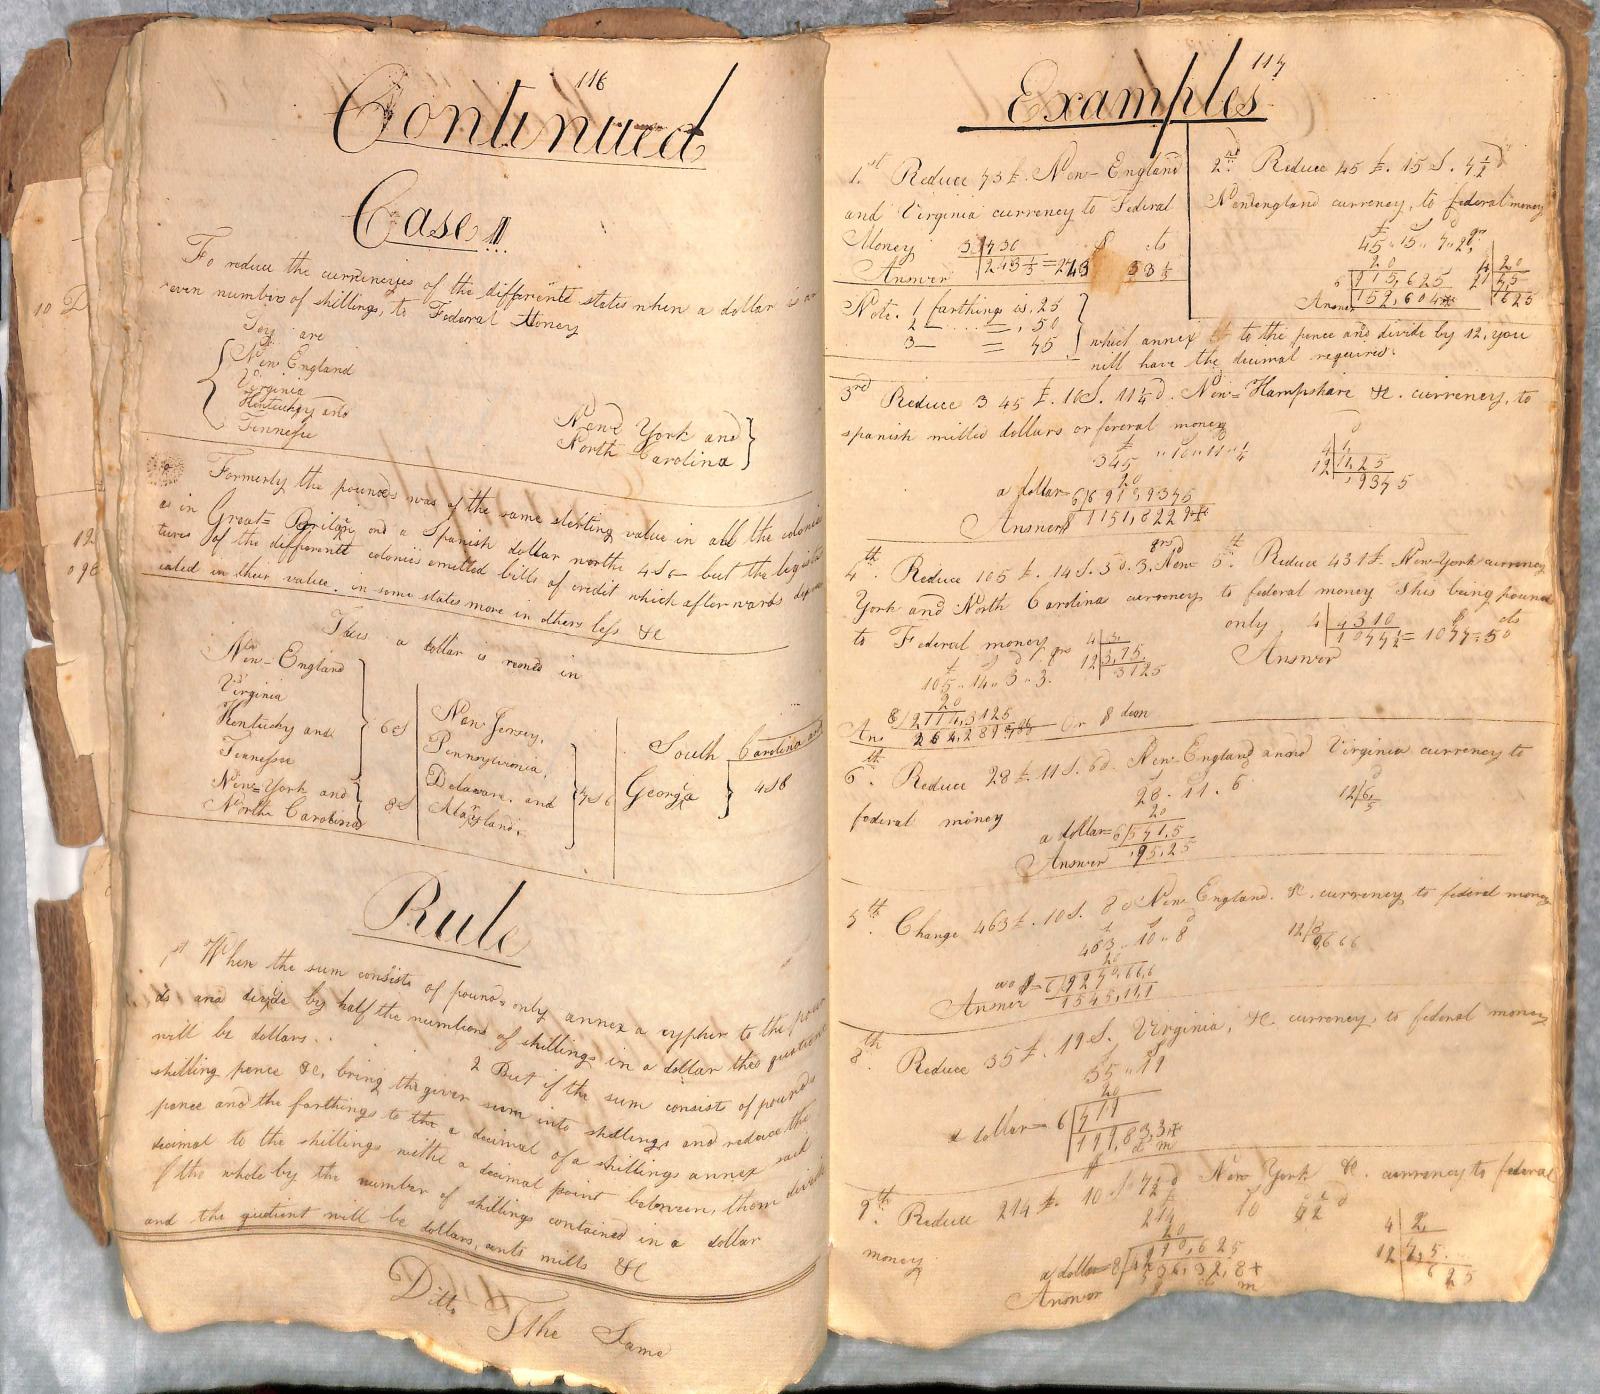 116
Continued
Case II
To reduce the currencyes of the differente states when a dollar is an
even number of shillings, to Federal Money
They are
New England
Virginia
Kentuckey and
Tennesse
New York and
North Carolina
Formerly the pounds was of the same sterling value in all the colonies
as in Great= Britain and a Spanish dollar worthe 4s6 but the legisla
tures of the differentt colonies emitted bills of credit which afterwards depre
ciated in their value. in some states more in others less &c
Thus a dollar is reoned in
New-England
Virginia
Kentuchy and
Tennessee
6S
New=York and
North Carolina
8S
New Jersey,
Pennsylvania,
Delaware, and
Maryland,
7S6
South Carolina and
Georgia
4S8
Rule
1st When the sum consists of pounds only annex a cypher to the poun
ds and divide by half the numbers of shillings in a dollar the quotient
will be dollars. 2 But if the sum consists of pounds
shilling pence &c, bring the given sum into shillings and reduce the
pence and the farthings to the a decimal of a shillings annex said
decimal to the shillings withe a decimal point between, them divide
the whole by the number of shillings contained in a dollar
and the quotient will be dollars, cents mills &c
Ditto The Same
10 D
12
098
117
Examples
1.st Reduce 73£. New-England
and Virginia currency to Federal
Money 3|730 $ cts
Answer 243⅓=243 33⅓
2nd Reduce 45£. 15S. 7½d
Newengland currency, to federal money
£ S d qr
45 " 15 " 7 " 2
20 4|2
6|915,625 12|7,5
Answer 152,604+ 1625
Note. 1 farthing is ,25
2 = ,50
3 = 75
which annex to the pence and divide by 12, you
will have the decimal required.
3rd Reduce 345£. 16S. 11¼d. New=Hampshire &c. currency, to
spanish milled dollars or fereral money
345 " 16 " 11 " ¼
20
4|1,
12|11,25
,9375
a dollar=6|6916,9375
Answer $ 1151,8229+
4th. Reduce 105£. 14S. 3d. 3 qrs New
York and North Carolina currency
to Federal money
105 " 14 " 3 " 3.
20
4|3,
12|3,75
,3125
8|2114,3125
Ans 264,289,06
5th. Reduce 431£. New-York currency
to federal money This being pounds
only 4|4310 $ cts
1077½= 1077=50
Answer
6th. Reduce 28£. 11S. 6d. New-England and Virginia currency to
federal money
28. 11. 6
20
12|6,
,5
a dollar=6|571,5
Answer ,95,25
5th. Change 463£. 10S. 8d New England. &c. currency to federal money
463 " 10 " 8
20
12|8
,666
6|9270,666
Answer 1545,111
8th. Reduce 35£. 19S. Virginia, &c. currency, to federal money
35 " 19
20
a dollar= 6|719
119,83,3+
$ c m
9th. Reduce 214£. 10S. 7½d New York &c. currency to federal
money.
214 10 7½
20
4|2,
12|7,5
625
a dollar=8|4290,625
536,32,8+
Answer $ c m